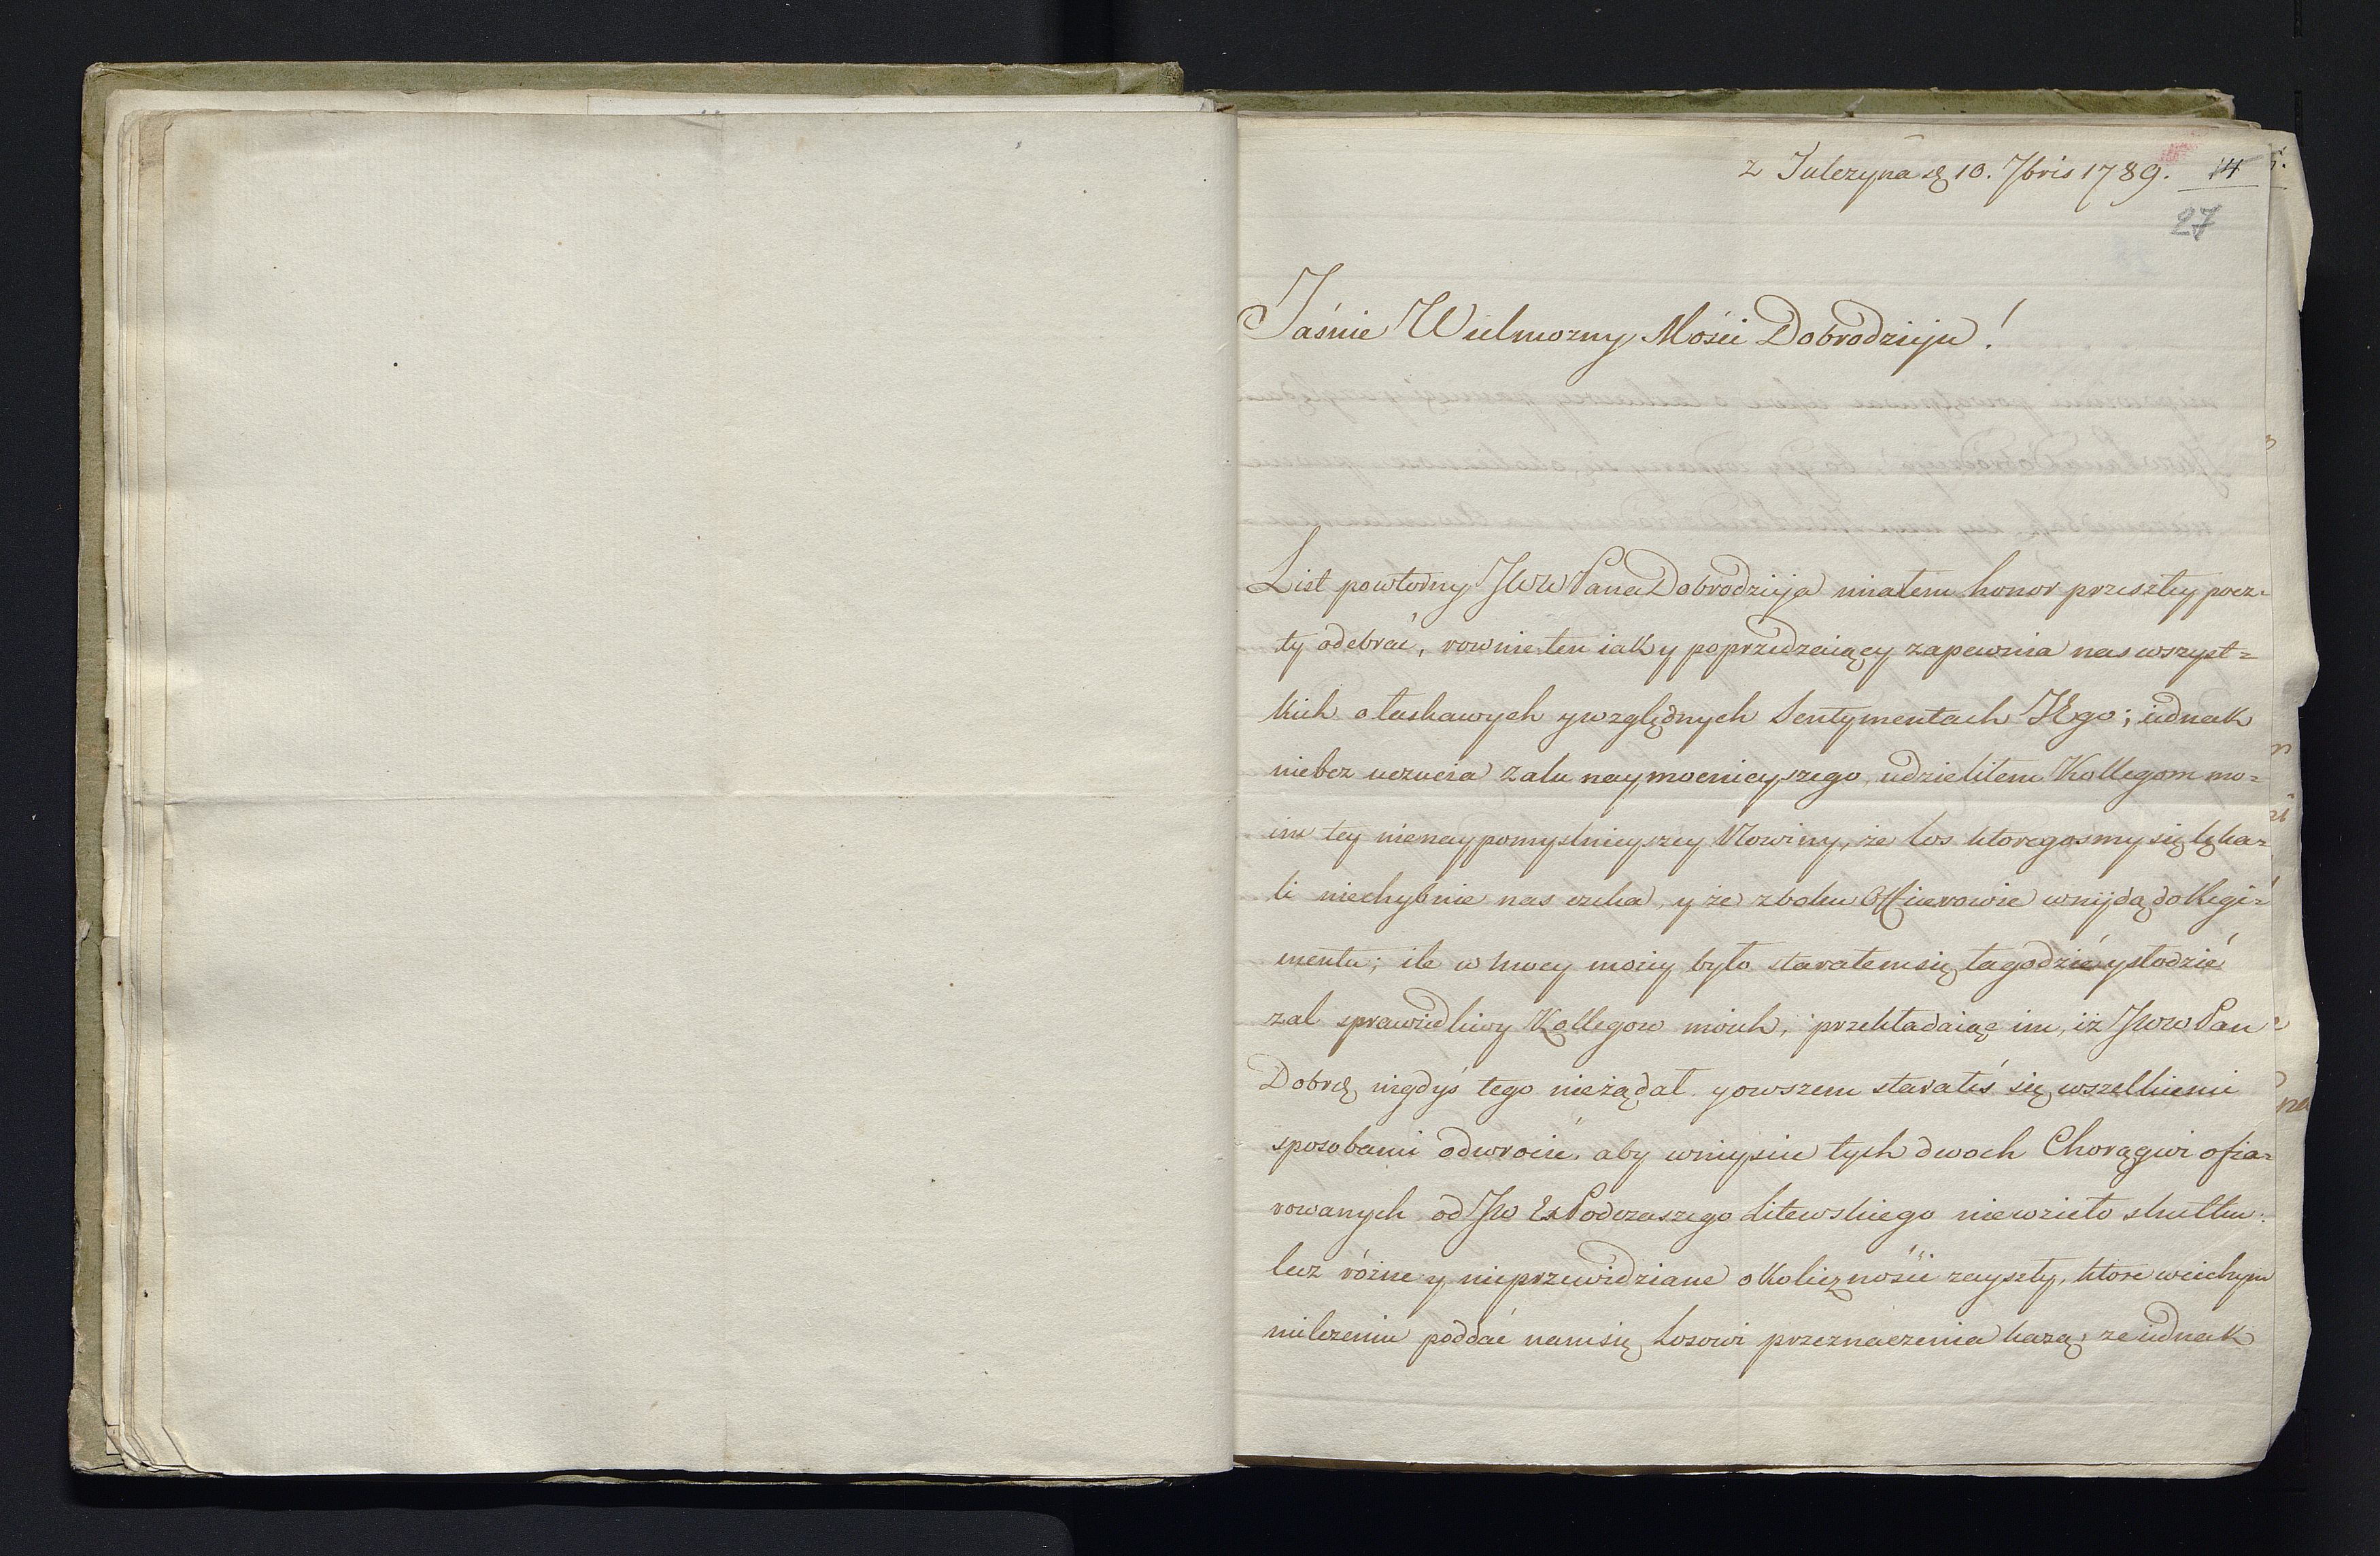 z Tulczyna d 10. 7bris 1789. 14
27
Jaśnie Wielmozny Mości Dobrodzieju!
List powtorny JWW Pana Dobrodzieja miałem honor przeszłey pocz=
ty odebrać, rownie ten iak y poprzedzaiący zapewnia nas wszyst=
kich o łaskawych y względnych Sentymentach JEgo; iednak
niebez uczucia zalu naymocnieyszego udzieliłem Kollegom mo=
im tey nienaypomyslnieyszey Nowiny, że los ktoregosmy się lęka=
li niechybnie nas czeka, y że z boku Officerowie wniydą do Regi=
mentu; ile w mocy moiey było starałem się łagodzić y słodzić
zal sprawiedliwy Kollegow moich, przekładaiąc im, iż JWW Pan
Dobrd nigdyś tego nieżądał y owszem starałeś się wszelkiemi
sposobami odwrocić, aby wniyscie tych dwoch Chorągwi ofia=
rowanych od JW Ex Podczaszego Litewskiego niewzieło skutku:
lecz różne y nieprzewidziane okoliczności zayszły, ktore wcichym
milczeniu poddać nam się Losowi przeznaczenia każą; ze iednak